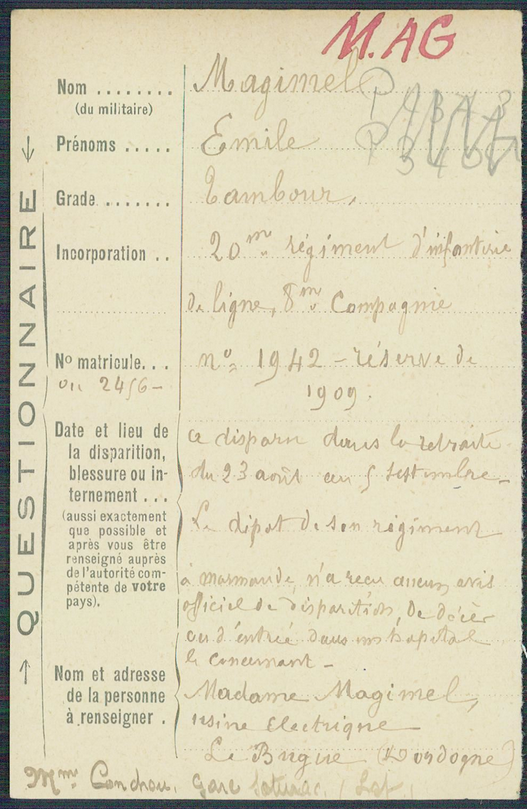 M.AG
QUESTIONNAIRE
Nom ........ Magimel P
(du militaire)
Prénoms ..... Emile P
Grade ....... Tambour,
Incorporation .. 20me régiment d'infanterie
de ligne, 8me Compagnie
No matricule... no 1942 - réserve de
ou 2456 - 1909.
Date et lieu de la disparition, blessure ou internement ...
(aussi exactement que possible et après vous être renseigné auprès de l'autorité compétente de votre pays).
a disparu dans la retraite
du 23 août au 5 septembre -
Le dépot de son régiment
à Marmande, n'a reçu aucun avis
officiel de disparition, de décès
ou d'entrée dans un hopital
le concernant -
Nom et adresse de la personne à renseigner .
Madame Magimel,
usine Electrique
Le Bugue (Dordogne)
Mme gare (Lot)